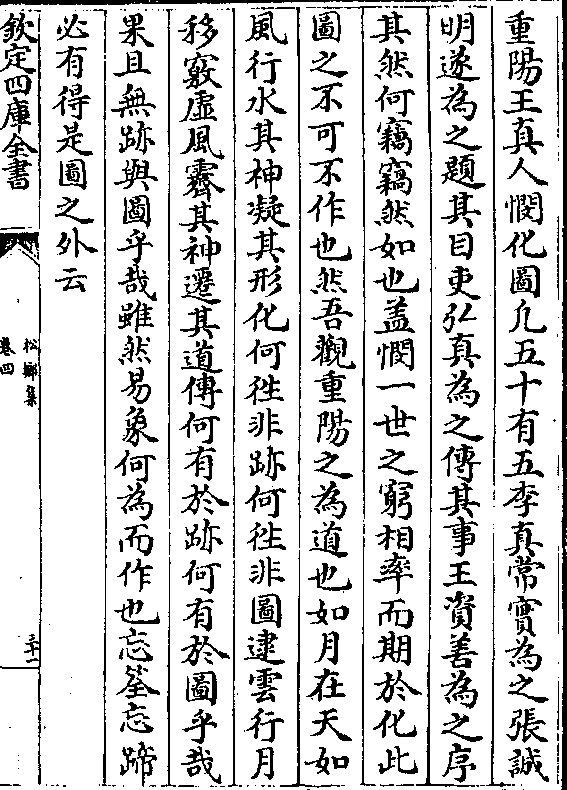 重陽王真人憫化圖凡五十有五李真常實為之張誠
明遂為之題其目吏弘真為之傳其事王資善為之序
其然何竊竊然如也盖憫一世之窮相率而期於化此
圖之不可不作也然吾觀重陽之為道也如月在天如
風行水其神凝其形化何徃非跡何徃非圖逮雲行月
移竅虚風霽其神遷其道傳何有於跡何有於圖乎哉
果且無跡與圖乎哉雖然易象何為而作也忘筌忘蹄
必有得是圖之外云
欽定四庫全書
松鄉集
卷四
三十一